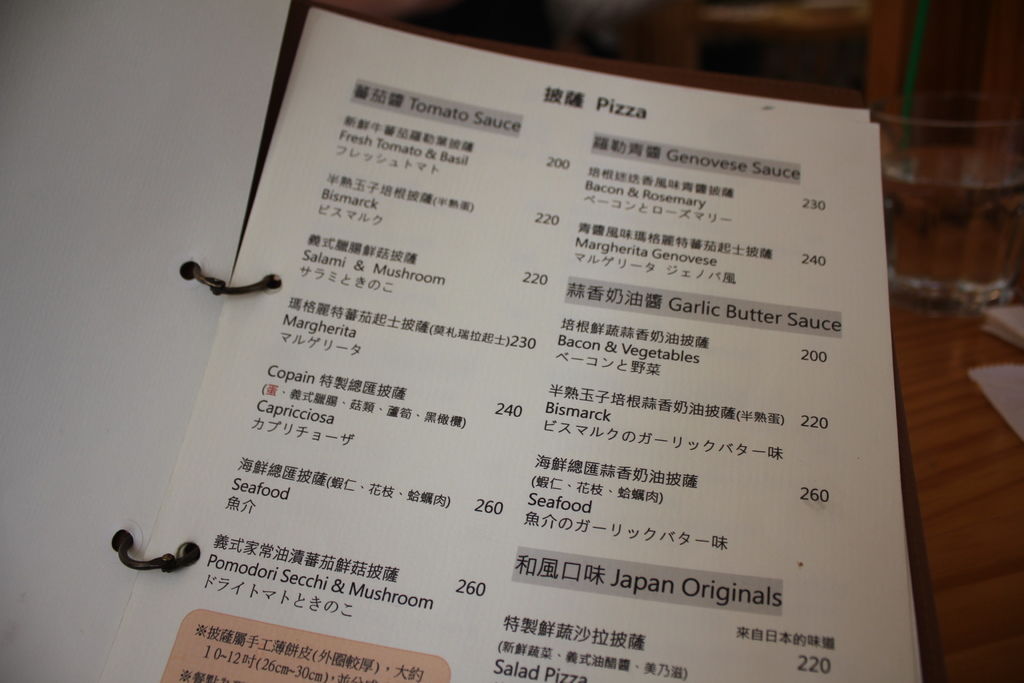 披薩 Pizza
蕃茄醬 Tomato Sauce
新鮮牛蕃茄羅勒葉披薩
Fresh Tomato & Basil 200
フレッシュトマト
半熟玉子培根披薩(半熟蛋)
Bismarck 220
ビスマルク
義式臘腸鮮菇披薩
Salami & Mushroom 220
サラミときのこ
瑪格麗特蕃茄起士披薩(莫札瑞拉起士)230
Margherita
マルゲリータ
Copain 特製總匯披薩
(蛋、義式臘腸、菇類、蘆筍、黑橄欖) 240
Capricciosa
カプリチョーザ
海鮮總匯披薩(蝦仁、花枝、蛤蠣肉)
Seafood 260
魚介
義式家常油漬蕃茄鮮菇披薩
Pomodori Secchi & Mushroom 260
ドライトマトときのこ
※披薩屬手工薄餅皮(外圈較厚)，大約
10~12吋(26cm~30cm)，並分成
羅勒青醬 Genovese Sauce
培根迷迭香風味青醬披薩
Bacon & Rosemary 230
ベーコンとローズマリー
青醬風味瑪格麗特蕃茄起士披薩
Margherita Genovese 240
マルゲリータ ジェノバ風
蒜香奶油醬 Garlic Butter Sauce
培根鮮蔬蒜香奶油披薩
Bacon & Vegetables 200
ベーコンと野菜
半熟玉子培根蒜香奶油披薩(半熟蛋) 220
Bismarck
ビスマルクのガーリックバター味
海鮮總匯蒜香奶油披薩
(蝦仁、花枝、蛤蠣肉) 260
Seafood
魚介のガーリックバター味
和風口味 Japan Originals
來自日本的味道
特製鮮蔬沙拉披薩
(新鮮蔬菜、義式油醋醬、美乃滋) 220
Salad Pizza